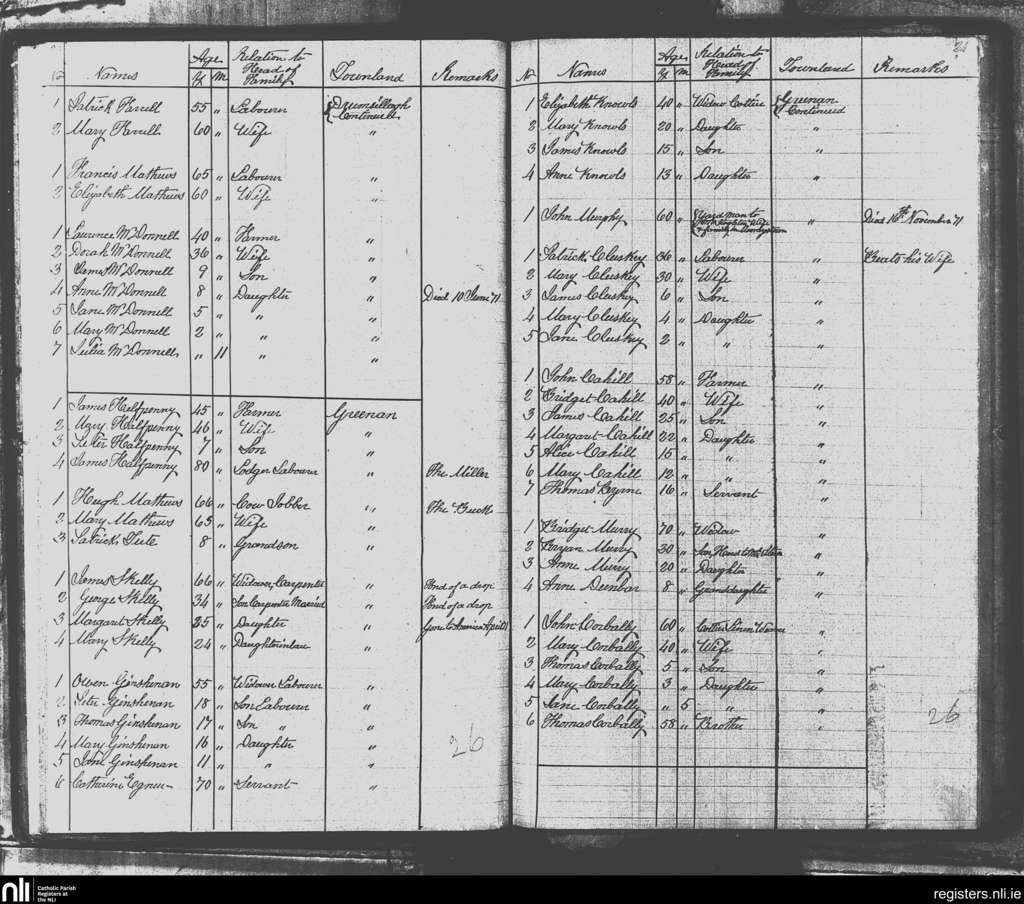 No Names Age Relation to Head of Family Townland Remarks
Y M
1 Patrick Farrell 55 " Labourer Drumsillogh Continued
2 Mary Farrell 60 " Wife "
1 Francis Mathews 65 " Labourer "
2 Elizabeth Mathews 60 " Wife "
1 Laurence McDonnell 40 " Farmer "
2 Dorah McDonnell 36 " Wife "
3 James McDonnell 9 " Son "
4 Anne McDonnell 8 " Daughter " Died 10 June 71
5 Jane McDonnell 5 " " "
6 Mary McDonnell 2 " " "
7 Julia McDonnell " 11 " "
1 James Halfpenny 45 " Farmer Greenan
2 Mary Halfpenny 46 " Wife "
3 Peter Halfpenny 7 " Son "
4 James Halfpenny 80 " Lodger Labourer " The Miller
1 Hugh Mathews 66 " Cow Jobber " The Buck
2 Mary Mathews 65 " Wife "
3 Patrick Tute 8 " Grandson "
1 James Skelly 66 " Widower, Carpenter " Fond of a drop
2 George Skelly 34 " Son Carpenter Married " Fond of a drop
3 Margaret Skelly 25 " Daughter " gone to America April 71
4 Mary Skelly 24 " Daughterinlaw "
1 Owen Ginshenan 55 " Widower Labourer "
2 Peter Ginshenan 18 " Son Labourer "
3 Thomas Ginshenan 17 " Son " "
4 Mary Ginshenan 16 " Daughter "
5 Jane Ginshenan 11 " " "
6 Catherine 70 " Servant "
26
24
No Names Age Relation to Head of Family Townland Remarks
Y M
1 Elizabeth Knowls 40 " Widow Cottier Greenan Continued
2 Mary Knowls 20 " Daughter "
3 James Knowls 15 " Son "
4 Anne Knowls 13 " Daughter "
1 John Murphy 60 " Yard man to " Died 16th November 71
1 Patrick Cluskey 36 " Labourer " Beats his Wife
2 Mary Cluskey 30 " Wife "
3 James Cluskey 6 " Son "
4 Mary Cluskey 4 " Daughter "
5 Jane Cluskey 2 " " "
1 John Cahill 58 " Farmer "
2 Bridget Cahill 40 " Wife "
3 James Cahill 25 " Son "
4 Margaret Cahill 22 " Daughter "
5 Alice Cahill 15 " " "
6 Mary Cahill 12 " " "
7 Thomas Byrne 16 " Servant "
1 Bridget Murry 70 " Widow "
2 Bryan Murry 30 " Son, "
3 Anne Murry 20 " Daughter "
4 Anne Dunbar 8 " Granddaughter "
1 John Corbally 60 " Cottier Linen Weaver "
2 Mary Corbally 40 " Wife "
3 Thomas Corbally 5 " Son "
4 Mary Corbally 3 " Daughter "
5 Jane Corbally " 5 " "
6 Thomas Corbally 58 " Brother "
26
nli Catholic Parish Registers at the NLI
registers.nli.ie